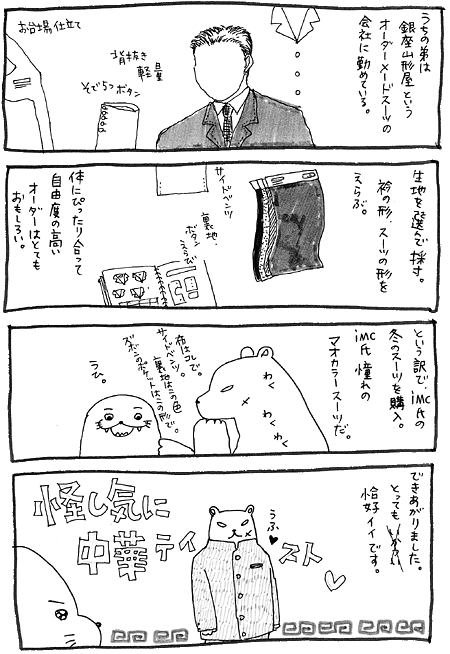 うちの弟は
銀座山形屋という
オーダーメードスーツの
会社に勤めている。
お台場仕立て
背抜き
軽量
そで5つボタン
生地を選んで採寸。
衿の形、スーツの形を
えらぶ。
サイドベンツ
裏地・
ボタン
えらび
体にぴったり合って
自由度の高い
オーダーはとても
おもしろい。
という訳で、imc氏の
冬のスーツを購入。
imc氏憧れの
マオカラースーツだ。
わく
わく
わく
布はコレで。
サイドベンツ。
裏地はこの色
ズボンのポケットはこの形で。
うひ。
できあがりました。
とっても
恰好イイです。
うふ
怪し気に
中華テイスト